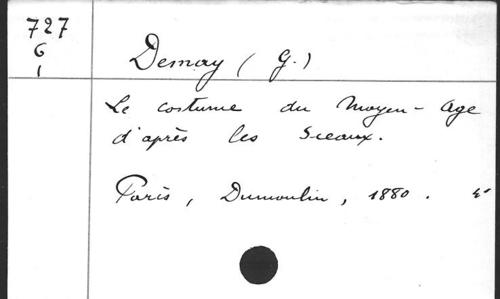 727
6
1
Demay (G.)
Le costume du Moyen-Age
d'après les Sceaux.
Paris, Dumoulin, 1880. 4°